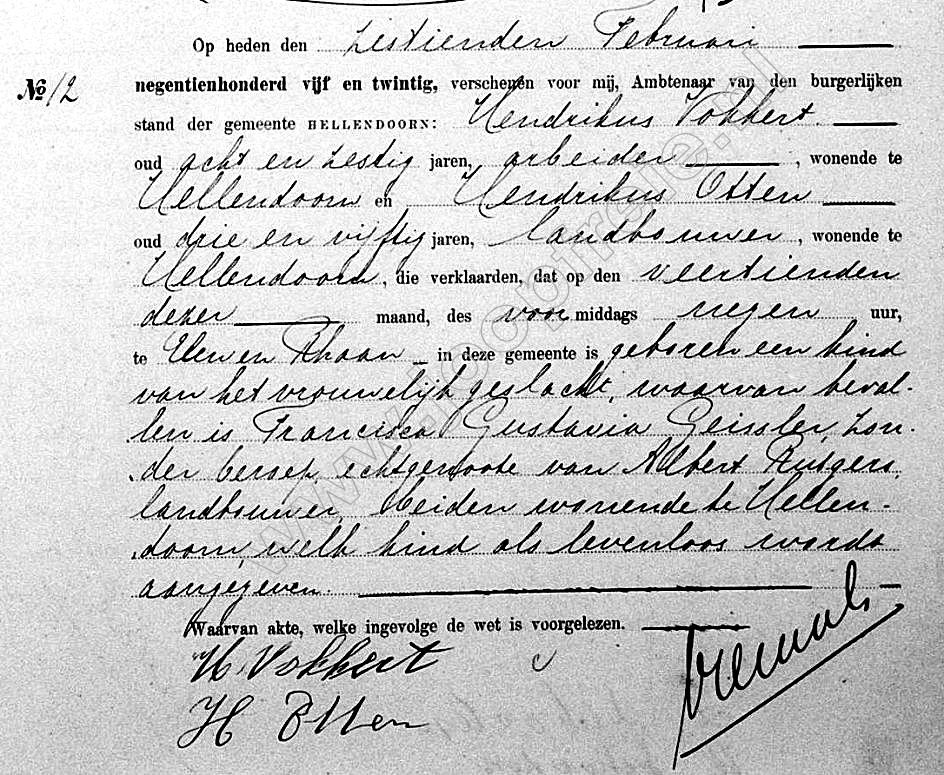 Op heden den zestienden Februari
No 12
negentienhonderd vijf en twintig, verschenen voor mij, Ambtenaar van den burgerlijken
stand der gemeente HELLENDOORN: Hendrikus Vokkert
oud acht en zestig jaren, arbeider, wonende te
Hellendoorn en Hendrikus Otten
oud drie en vijftig jaren, landbouwer, wonende te
Hellendoorn, die verklaarden, dat op den veertienden
dezer maand, des voormiddags negen uur,
te Elen en Rhaan in deze gemeente is geboren een kind
van het vrouwelijk geslacht, waarvan beval-
len is Francisca Gustavia Geissler, zon-
der beroep, echtgenoote van Albert Rutgers,
landbouwer, beiden wonende te Hellen-
doorn, welk kind als levenloos wordt
aangegeven.
Waarvan akte, welke ingevolge de wet is voorgelezen.
H Vokkert
H Otten
www.coopircle.nl